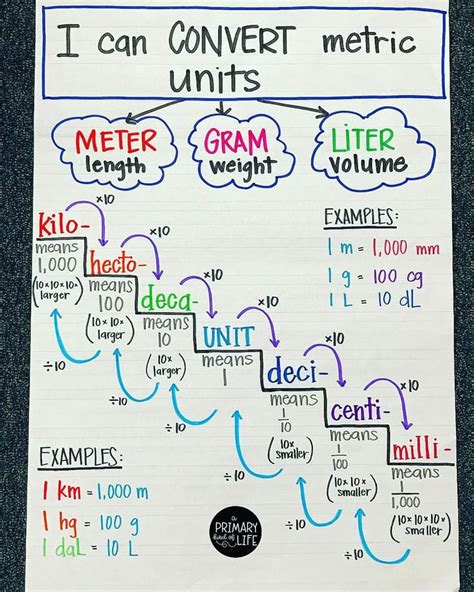 I can CONVERT metric
units
METER
length
GRAM
weight
LITER
volume
kilo-
means
1,000
(10x10x10x
larger)
x10
hecto-
means
100
(10x10x
larger)
x10
deca-
means
10
(10x
larger)
x10
UNIT
means
1
x10
deci-
means
1
10
(10x
smaller)
x10
centi-
means
1
100
(10x10x
smaller)
x10
milli-
means
1
1,000
(10x10x10x
smaller)
÷10
÷10
÷10
÷10
÷10
÷10
EXAMPLES:
1 m = 1,000 mm
1 g = 100 cg
1 L = 10 dL
EXAMPLES:
1 km = 1,000 m
1 hg = 100 g
1 daL = 10 L
a
PRIMARY
kind of
LIFE